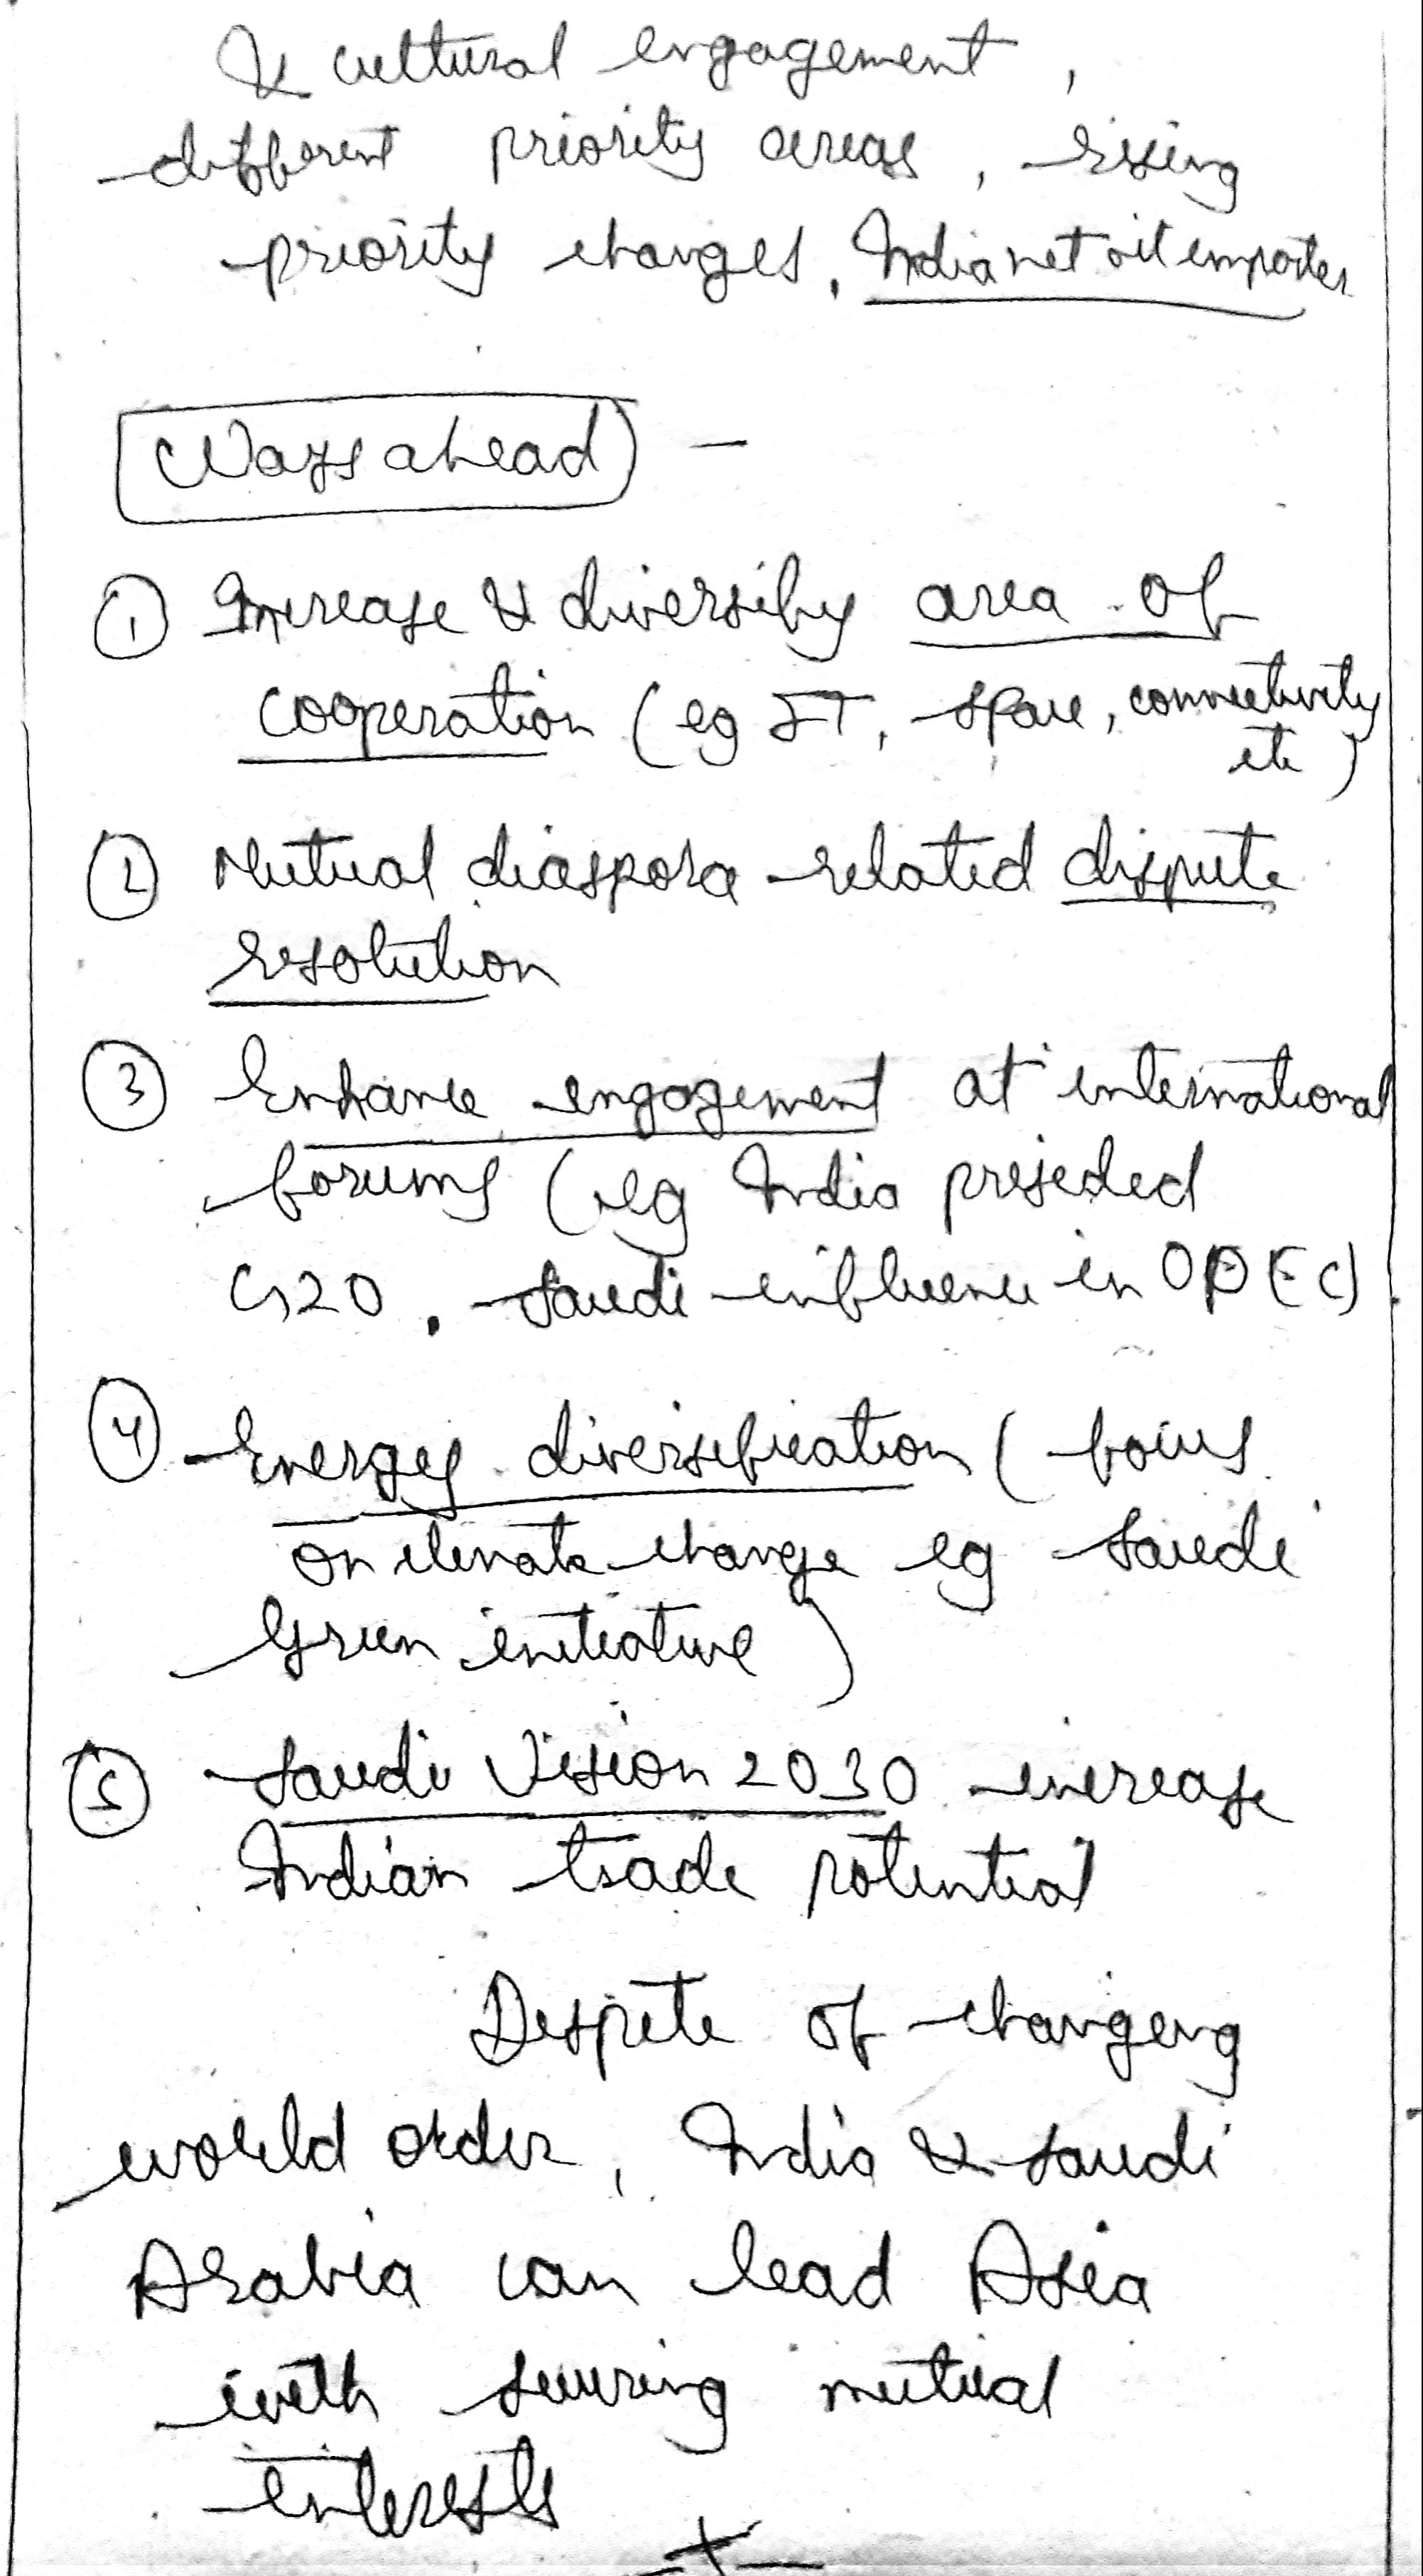 & cultural engagement,
different priority areas, rising
priority changes, India net oil importer
Ways ahead –
① Increase & diversify area of
cooperation (eg IT, space, connectivity
etc)
② Mutual diaspora related dispute
resolution
③ Enhance engagement at international
forums (eg India preseded
G20, Saudi influence in OPEC)
④ Energy diversification (focus
on climate change eg Saudi
Green initiative)
⑤ Saudi Vision 2030 increase
Indian trade potential
Despite of changing
world order, India & Saudi
Arabia can lead Asia
with securing mutual
interests